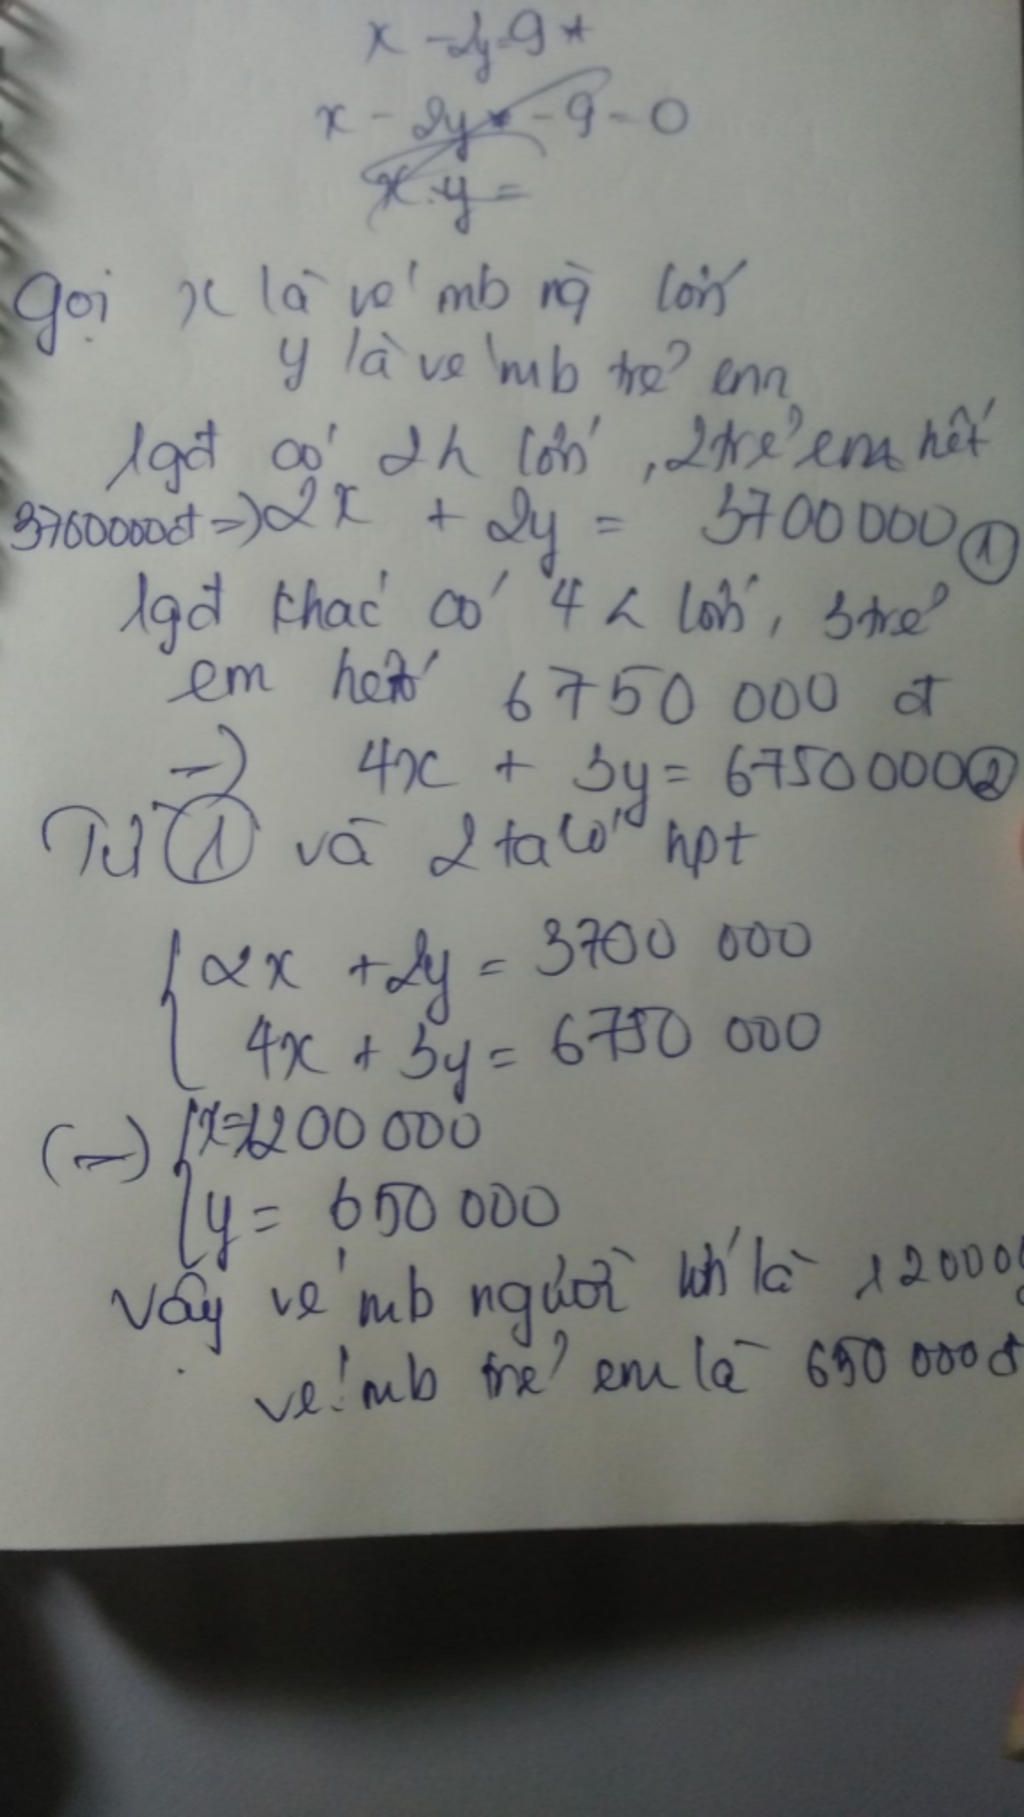 x - 2y = 9
x - 2y - 9 = 0
x . y =
Gọi x là vé mb ng lớn
y là vé mb trẻ em
1gđ có 2n lớn, 2 trẻ em hết
3700000đ => 2x + 2y = 3700000 ①
1gđ khác có 4 n lớn, 3 trẻ
em hết 6750 000 đ
=> 4x + 3y = 6750 000 ②
Từ ① và 2 ta có hpt
{ 2x + 2y = 3700 000
4x + 3y = 6750 000
(=) { x = 1200 000
y = 650 000
Vậy vé mb người lớn là 12000
vé mb trẻ em là 650 000đ